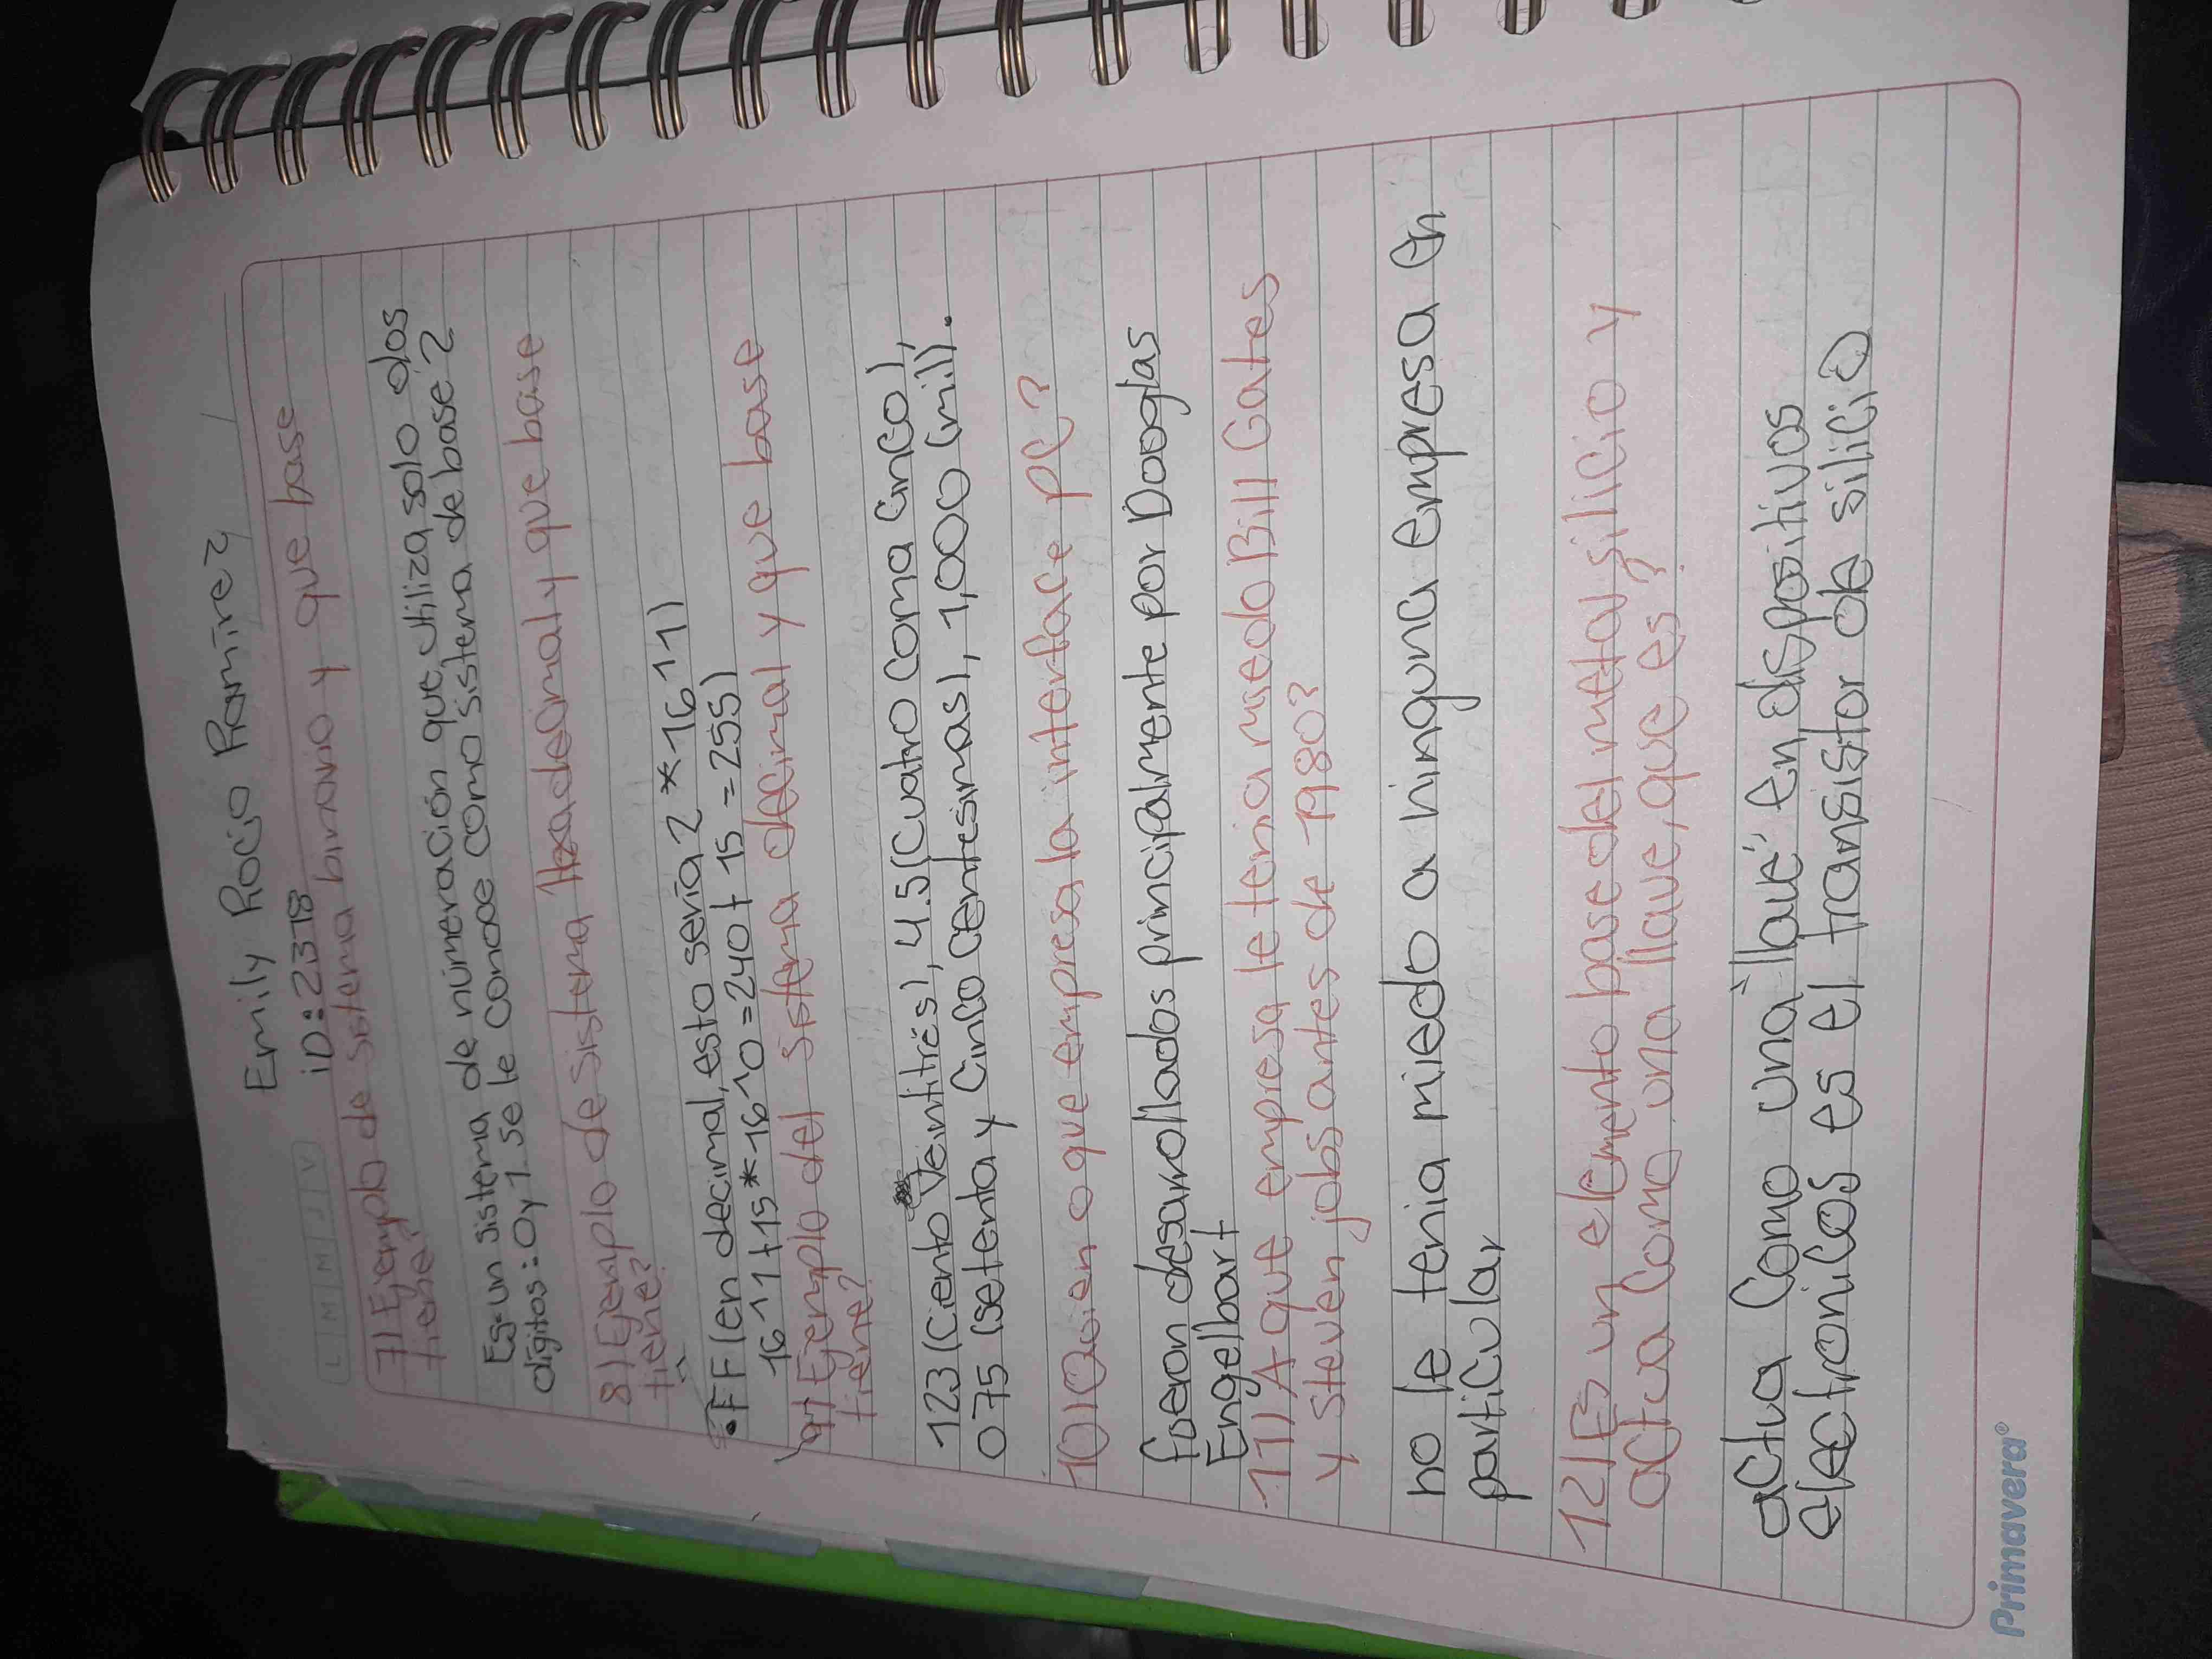 Emily Rocio Ramirez
iD: 2378
L M M J V
7) Ejemplo de sistema binario y que base
tiene?
Es un sistema de númeración que utiliza solo dos
dígitos: 0 y 1 se le conoce como sistema de base 2
8) Ejemplo de sistema Hexadecimal y que base
tiene?
• FF (en decimal, esto sería 2 * 16 1 1)
16 1 1 + 15 * 16^0 = 240 + 15 = 255)
9) Ejemplo del sistema decimal y que base
tiene?
123 (Ciento Veintitrés), 4.5 (Cuatro coma Cinco),
075 (setenta y Cinco Centesimas), 1,000 (mil).
10) Quien o que empresa la interface pc?
fueron desarrollados principalmente por Dooglas
Engelbart
11) A que empresa le tenia miedo Bill Gates
y steven jobs antes de 1980?
no le tenia miedo a ninguna empresa en
particular
12) Es un elemento base del metal silicio y
actua como una llave, que es?
actua Como una "llave" en dispositivos
electronicos es el transistor de silicio
Primavera®